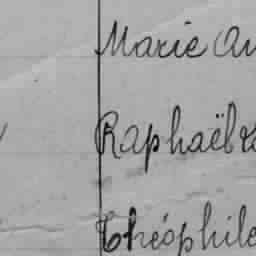 Marie
Raphaël
Théophile